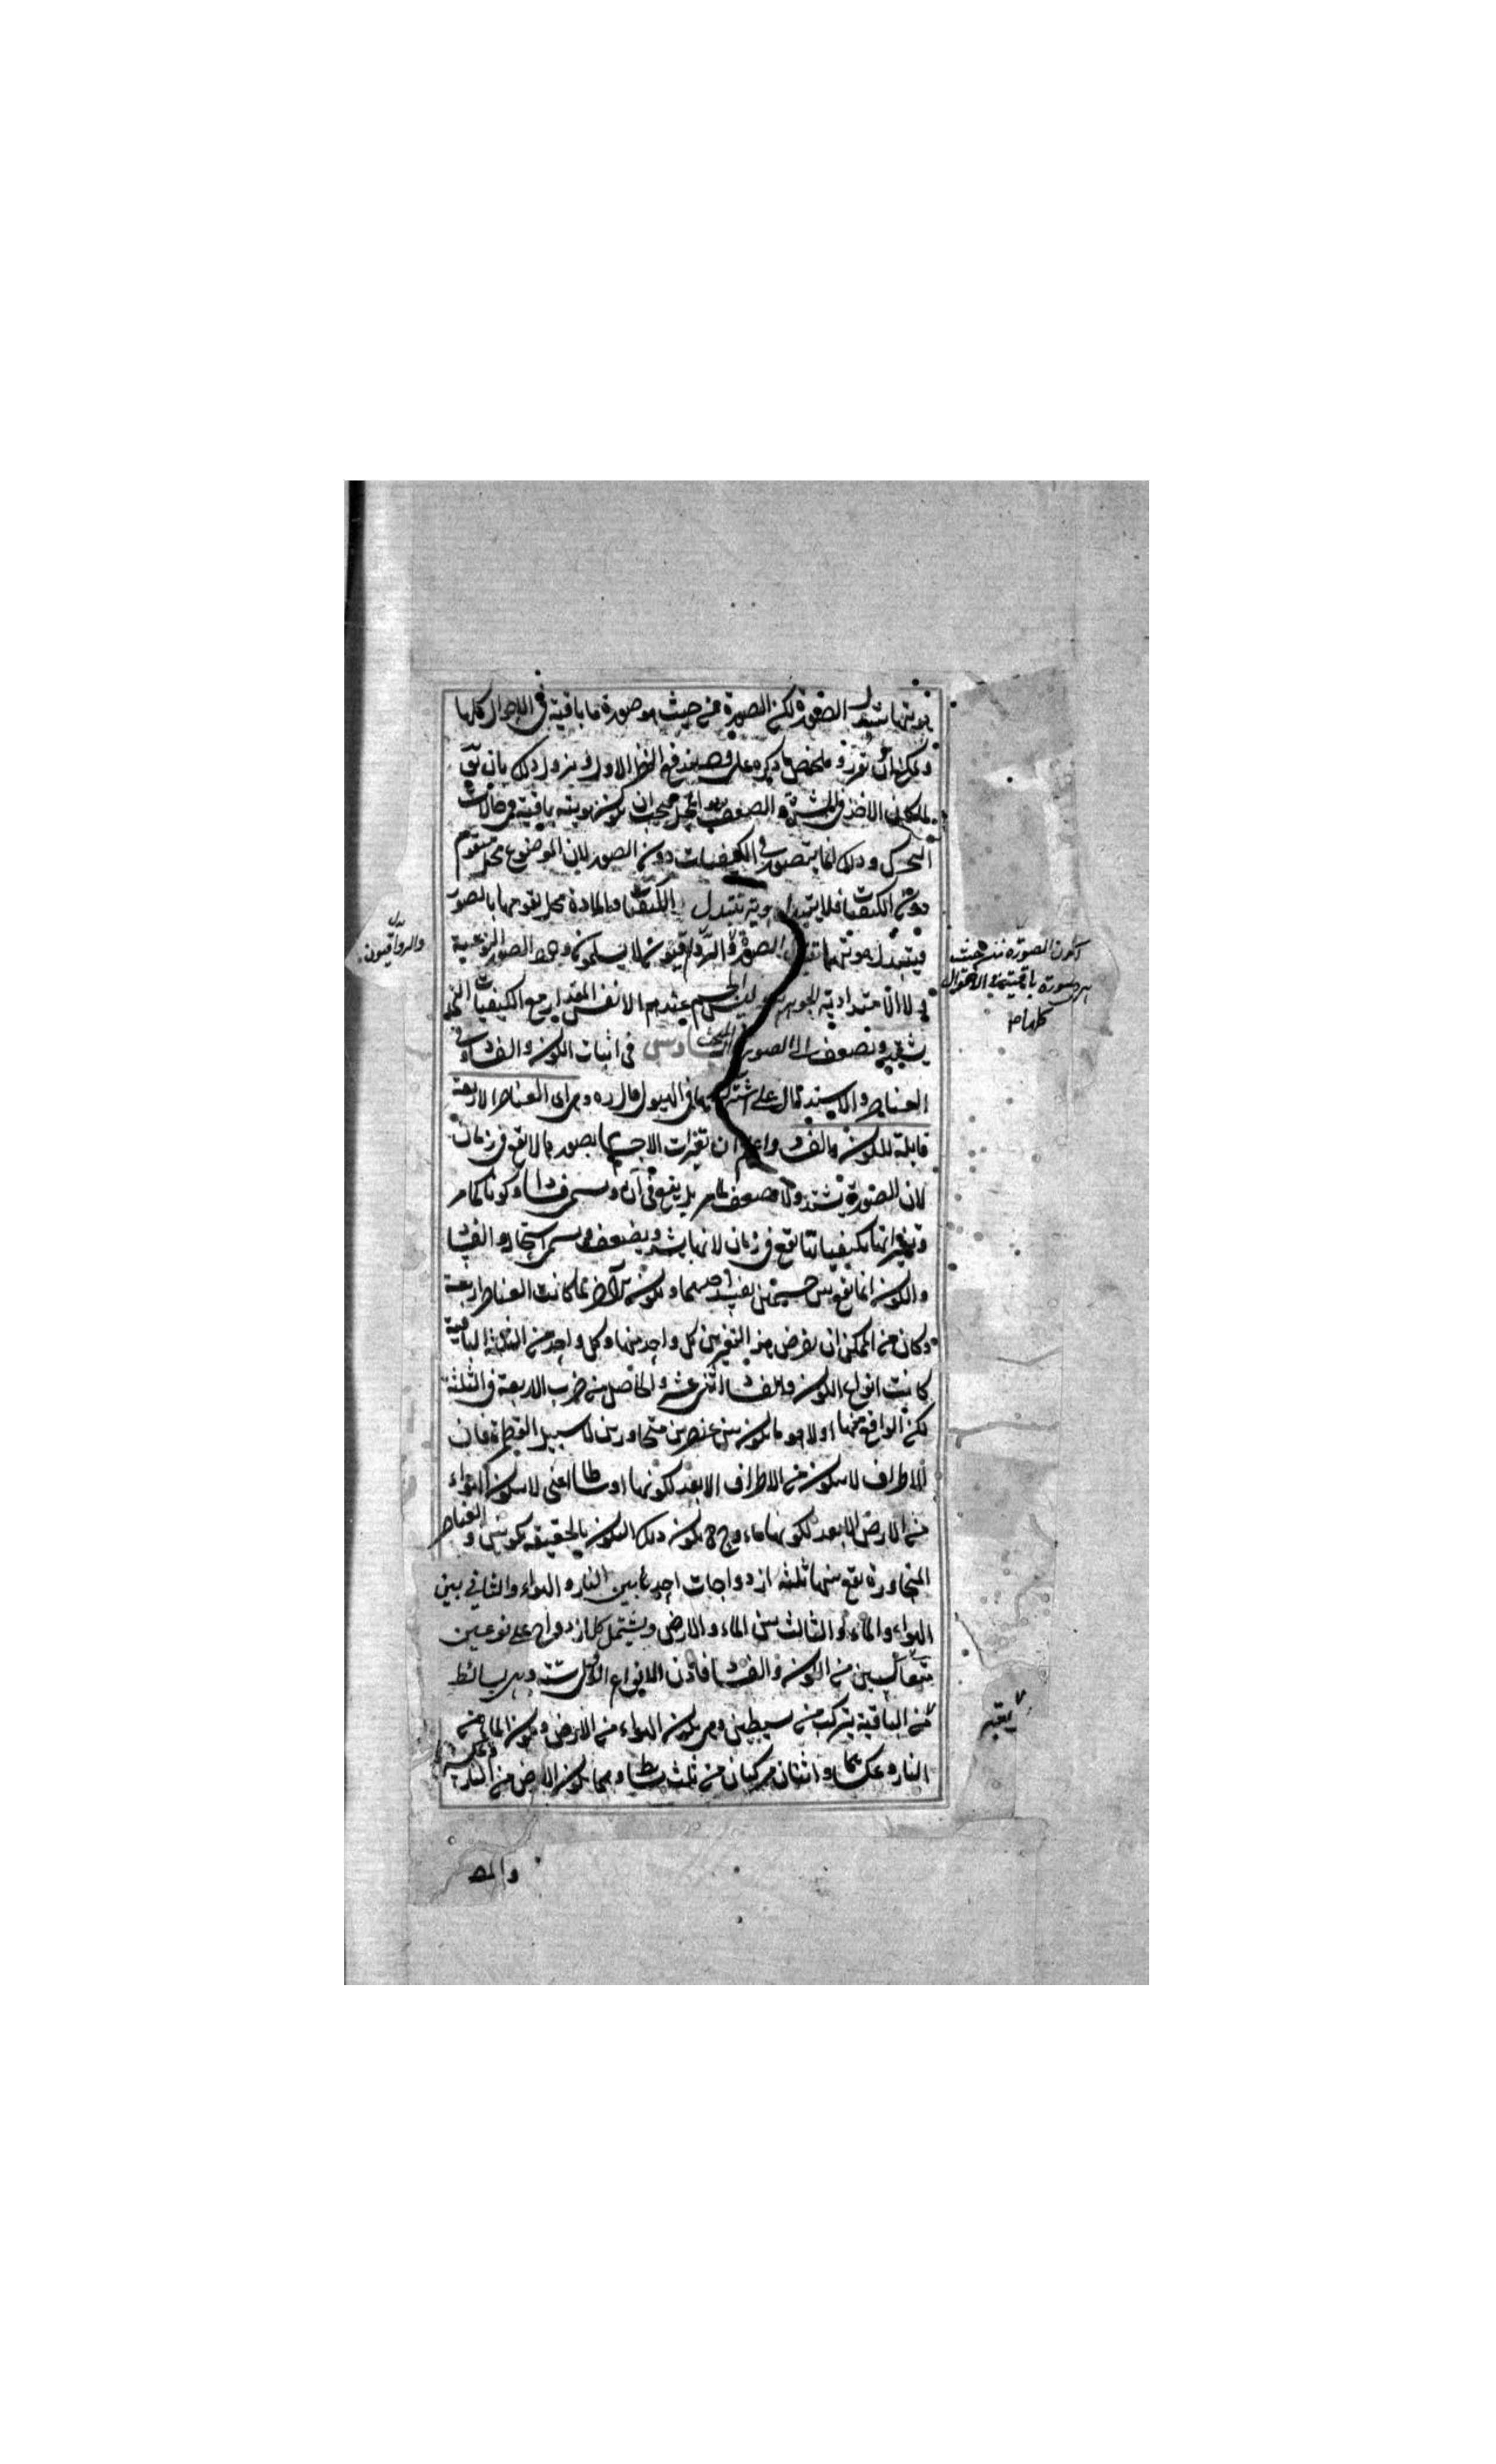 هويتها بتبدل الصورة لكن الصورة من حيث هو صورة ما باقية في الاحوال كلها
ويمكن ان نقرر ملخص ما ذكره على وجه يندفع النظر الاول ويزول ذلك بان يق
الاخذ في الشدة والضعف يجب ان يكون هويته باقية في حالات
التحرك وذلك انما يتصور في الكيفيات دون الصور لان الموضوع محل متقوم
دون الكيفيات فلا يتبدل هويته بتبدل الكيفيات والمادة محل تقومها بالصور
فيتبدل هويتها الصورة والرواقيون لا يسلمون الصور النوعية
لا الامتدادية الجوهرية الجسم عندهم الا نفس المقدار مع الكيفيات التي
يشتد ويضعف الصور المبحث السادس في اثبات الكون والفساد في
العناصر على اشتراكها في الهيولى قال ره وهى اى العناصر الاربعة
قابلة للكون والفساد واعلم ان تغيرات الاجسام بصورها لا تقع في زمان
لان الصورة لا تشتد ولا تضعف كما مر بل يقع في آن ويسمى فسادا وكونا كما مر
وتغيراتها بكيفياتها تقع في زمان لانها يشتد ويضعف ويسمى استحالة والفساد
والكون انما يقع بين جسمين يفسد احدهما ويكون الاخر فلما كانت العناصر اربعة
وكان من الممكن ان يفرض هذا التغير بين كل واحد منها وكل واحد من الثلثة الباقية
كانت انواع الكون والفساد اثنى عشر والحاصل من ضرب الاربعة في الثلثة
لكن الواقع منها اولا هو ما يكون بين عنصرين متجاورين لا سبيل الطفرة فان
الاطراف لا يتكون من الاطراف الا بعد تكونها اوساطا اعنى لا يتكون الهواء
من الارض الا بعد تكونها ماء وح يكون ذلك التكون بالحقيقة تكونين والعناصر
المتجاورة يقع بينها ثلثة ازدواجات احدها بين النار والهواء والثاني بين
الهواء والماء والثالث بين الماء والارض ويشتمل كل ازدواج على نوعين
متعاكسين من الكون والفساد فاذن الانواع الاول ستة وهى بسائط
من الباقية يتركب من بسيطين وهى تكون الهواء من الارض وتكون الماء من
النار وعكسهما واثنان مركبان من ثلث بسائط وهما تكون الارض من النار وعكسه
والرواقيون
لكون الصورة من حيث
هى صورة باقية في الاحوال
كلها
والمص